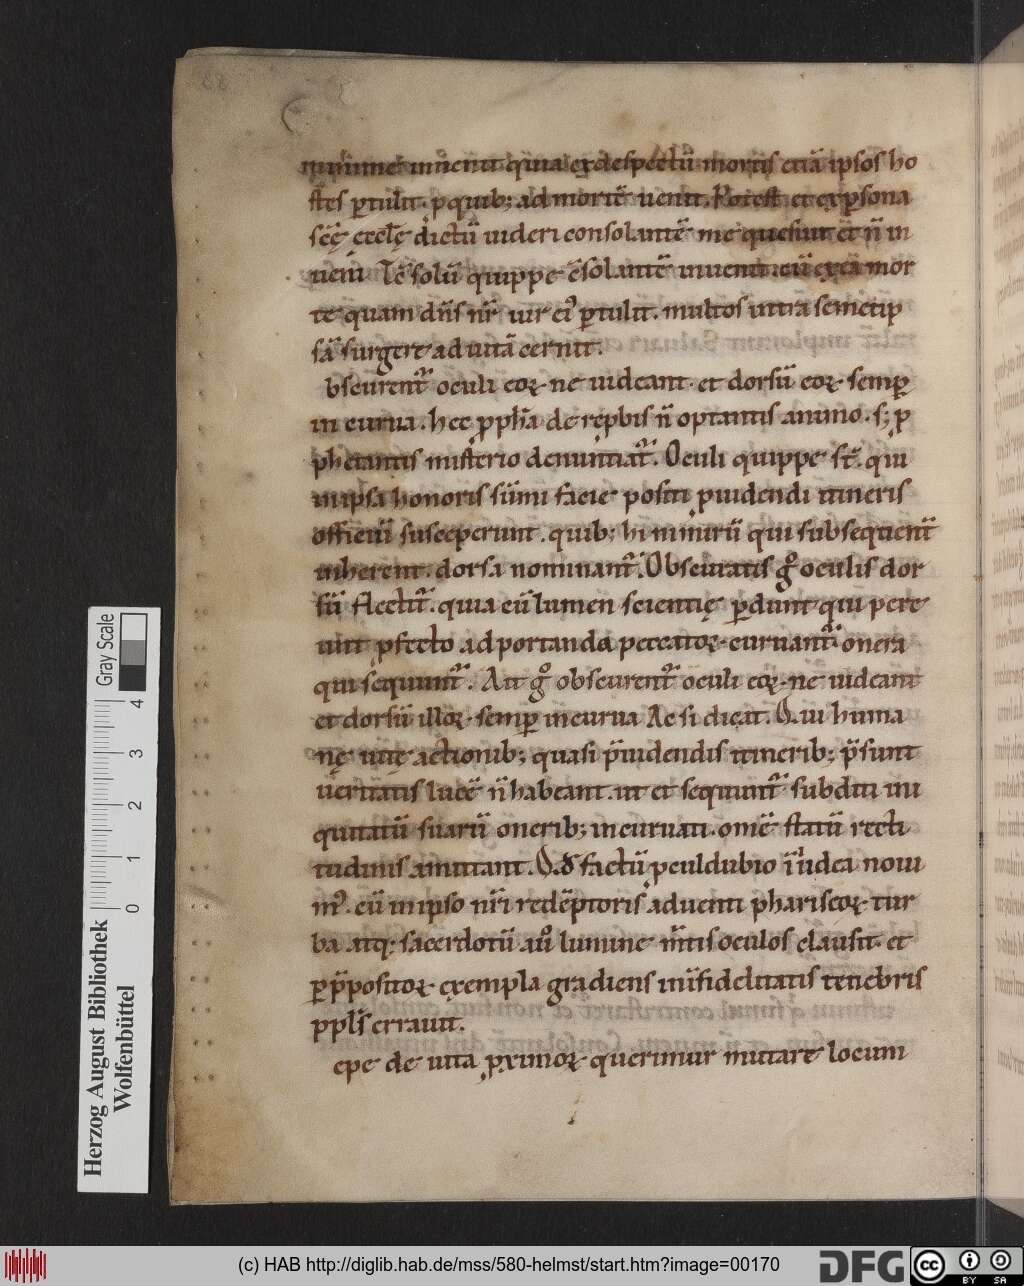 minime inuenit quia ex despectū mortis etiā ipsos ho
stes ꝑtulit. ꝓ quib; ad mortē uenit. Potest et ex ꝑsona
sc̄ę ęccl̄ę dictū uideri consolantē me quesiui et n̄ in
ueni. Iē solū quippe c̄solantē inuenit
te quam dn̄s nr̄ uir ei' ꝑtulit. multos ultra semetip
sā surgere ad uitā cernit.
bscurent᷑ oculi eoꝝ ne uideant. et dorsū eoꝝ semꝑ
in curua. hec ꝓph̄a de reꝓbis n̄ optantis animo. s; ꝓ
phetantis misterio denuntiat᷑. Oculi quippe st̄. qui
in ipsa honoris sūmi facie positi ꝓuidendi itineris
officiū susceperunt. quib; hi nimirū qui subsequent᷑
inherent. dorsa nominant᷑. Obscuratis gͦ oculis dor
sū flectit᷑. quia cū lumen scientię ꝑdunt qui pre
unt ꝓfecto ad portanda peccatoꝝ curuant᷑ onera
qui sequunt᷑. Ait gͦ obscurent᷑ oculi eoꝝ ne uideant
et dorsū illoꝝ semꝑ incurua Ac si dicat. Qui huma
nę uitę actionib; quasi p̄uidendis itinerib; p̄sunt
ueritatis lucē n̄ habeant. ut et sequunt᷑ subditi ini
quitatū suarū onerib; incuruati. omē statū recti
tudinis amittant. Qđ factū ꝓculdubio ī iudea noui
m'. cū in ipso nr̄i redēptoris aduentu phariseoꝝ tur
ba atq; sacerdotū a uͦ lumine m̄tis oculos clausit. et
ꝑ p̄positoꝝ exempla gradiens in īfidelitatis tenebris
ppl's errauit.
epe de uita ꝓximoꝝ querimur mutare locum
88
Herzog August Bibliothek
Wolfenbüttel
0 1 2 3 4
Gray Scale
(c) HAB http://diglib.hab.de/mss/580-helmst/start.htm?image=00170
DFG
cc BY SA